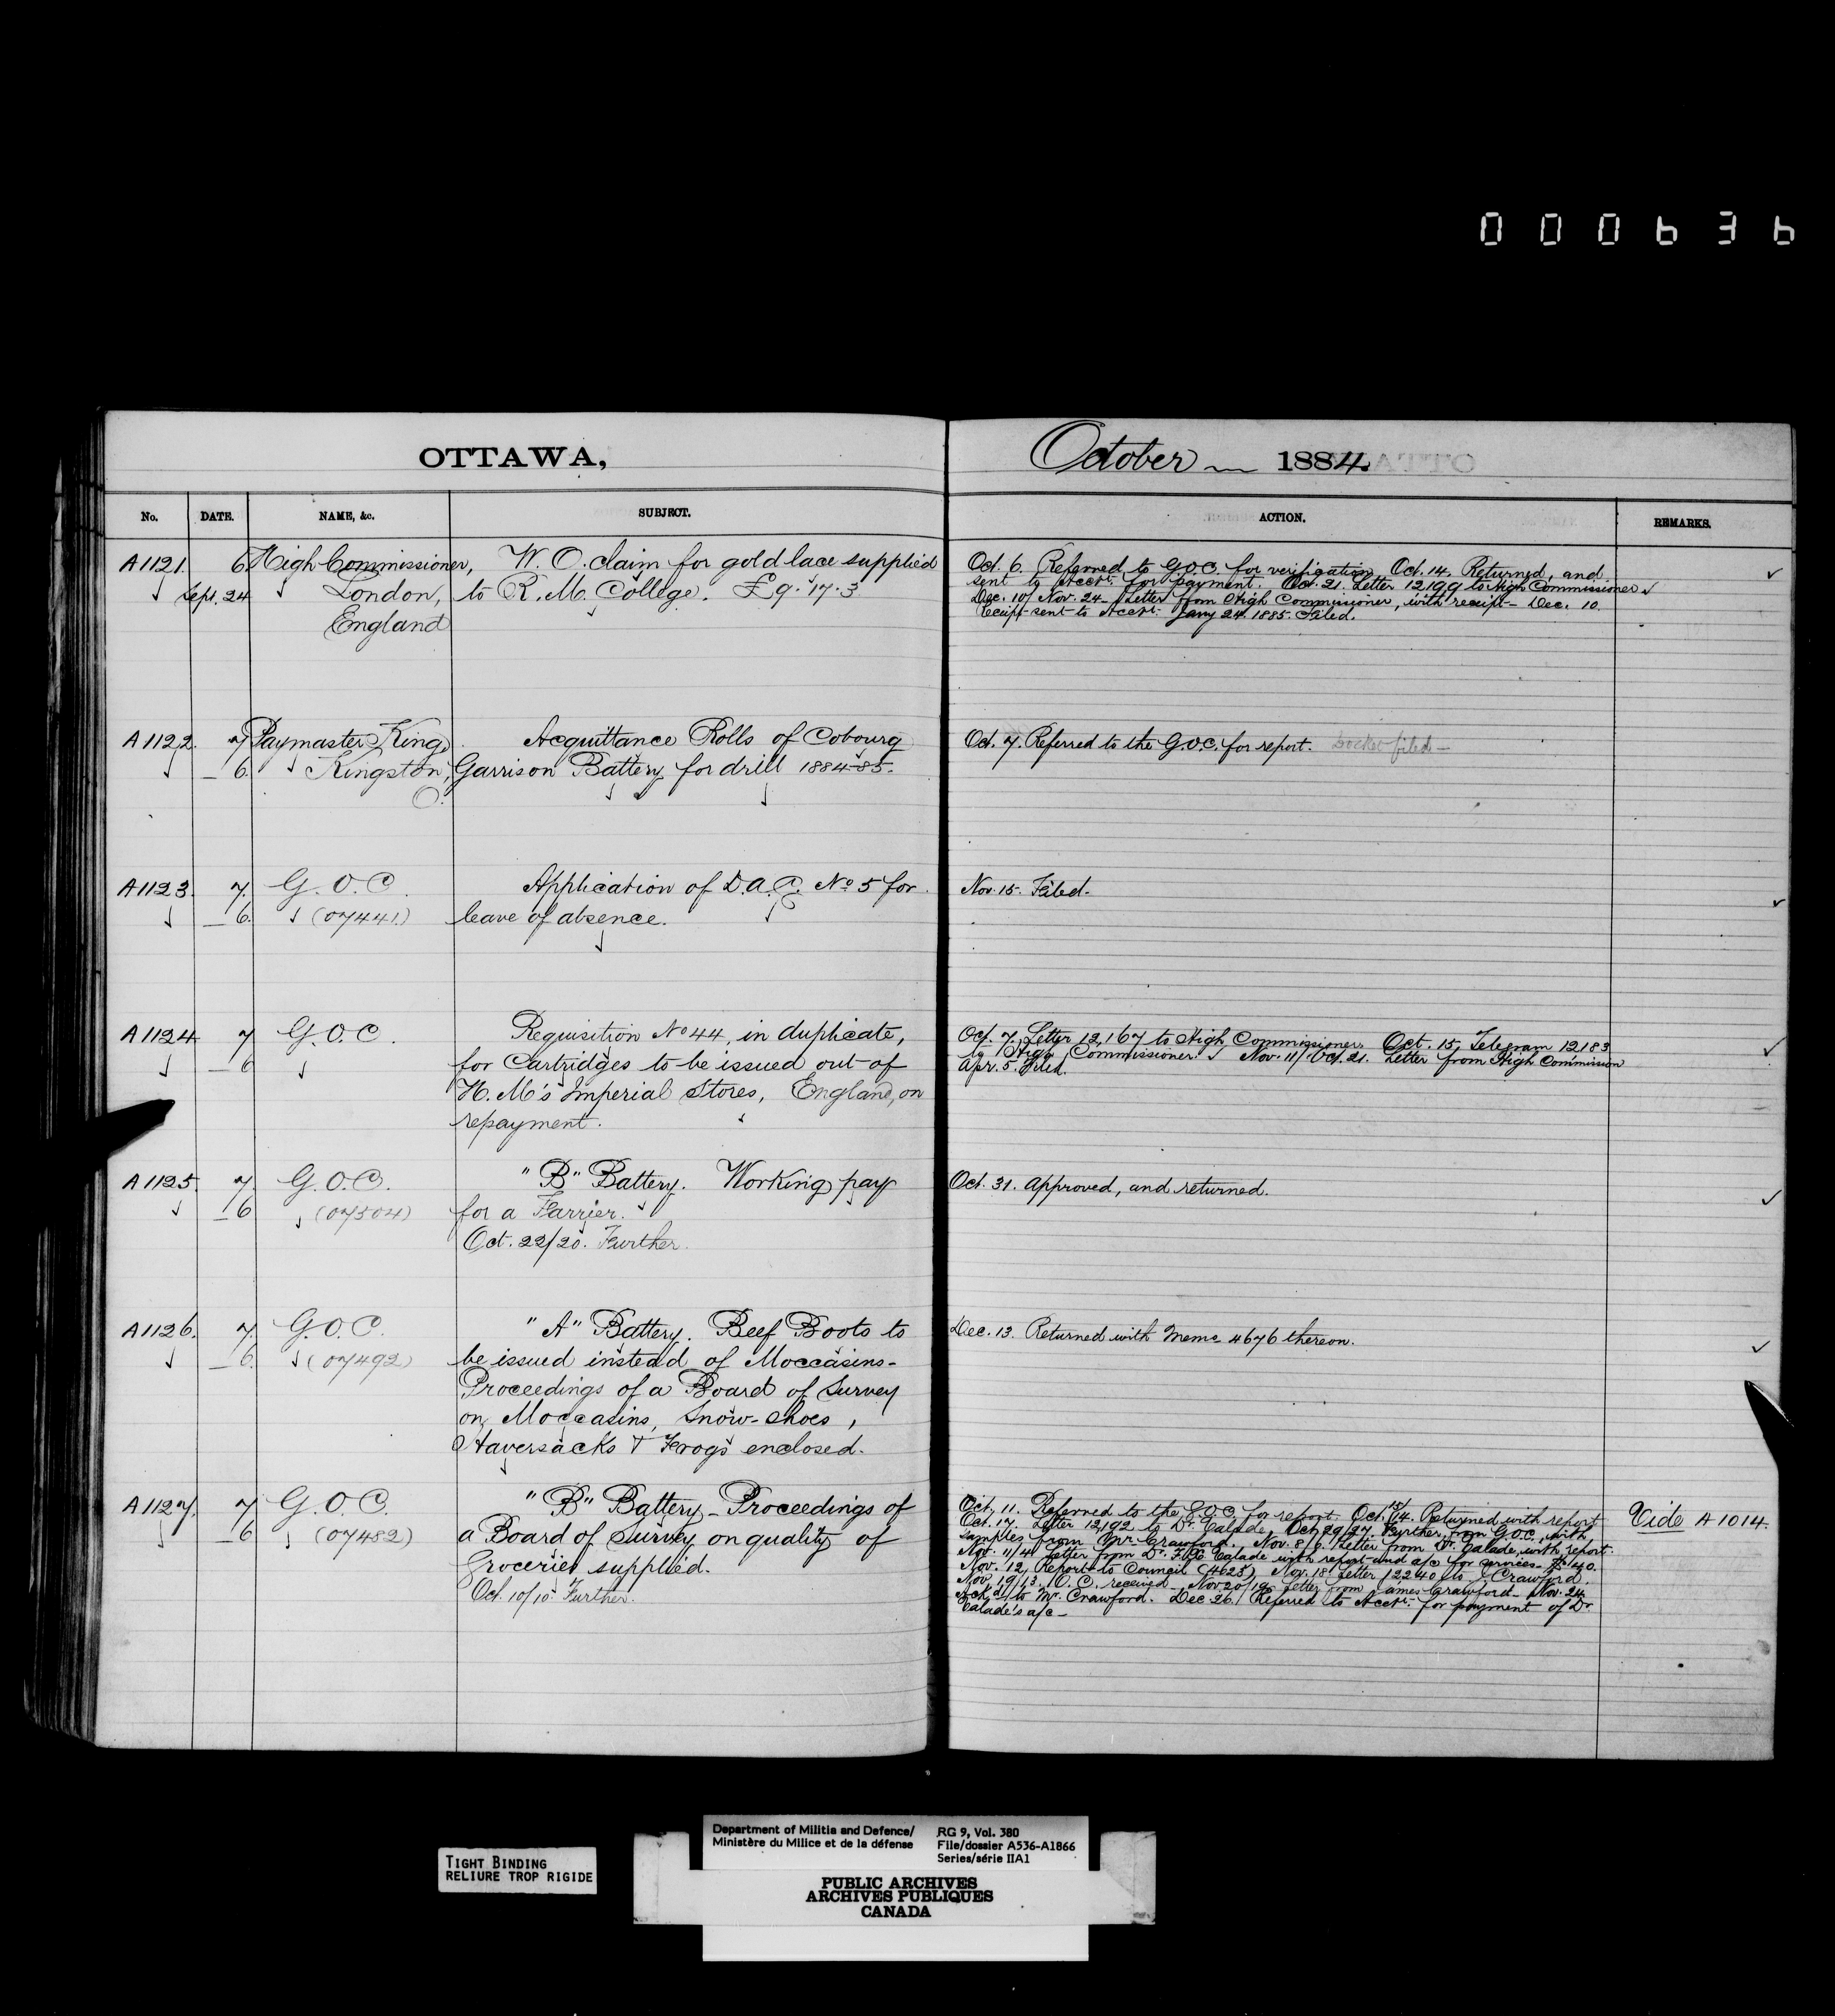 000636
OTTAWA,
October 1884.
No. DATE. NAME, &c. SUBJECT. ACTION. REMARKS.
A1121. 6 High Commissioner, W. O. claim for gold lace supplied
Sept. 24 London, to R. M. College. £9.17.3
England
Oct. 6. Referred to G.O.C. for verification. Oct. 14. Returned, and
sent to Acct. for payment. Oct. 21. Letter 12199 to High Commissioner
Dec. 10/Nov. 24 - Letter from High Commissioner, with receipt - Dec. 10.
Receipt sent to Acct. Jany 24. 1885. Filed.
A1122. 7 Paymaster King, Acquittance Rolls of Cobourg
_ 6. Kingston, Garrison Battery for drill 1884-85.
O.
Oct. 7. Referred to the G.O.C. for report. Docket filed -
A1123. 7. G. O. C. Application of D.A.C. No 5 for
_ 6. (07441) leave of absence.
Nov. 15. Filed.
A1124 7 G. O. C. Requisition No 44, in duplicate,
_ 6 for Cartridges to be issued out of
H. M's Imperial Stores, England, on
repayment.
Oct. 7. Letter 12,167 to High Commissioner. Oct. 15, Telegram 12183
to High Commissioner. Nov. 11/Oct. 21. Letter from High Commission
Apr. 5. Filed.
A1125. 7. G. O. C. "B" Battery. Working pay
_ 6 (07504) for a Farrier.
Oct. 22/20. Further.
Oct. 31. Approved, and returned.
A1126. 7. G. O. C. "A" Battery. Beef Boots to
_ 6. (07492) be issued instead of Moccasins-
Proceedings of a Board of Survey
on Moccasins, Snow-Shoes,
Haversacks & Frogs enclosed.
Dec. 13. Returned with Memo 4676 thereon.
A1127. 7 G. O. C. "B" Battery - Proceedings of
_ 6 (07482) a Board of Survey on quality of
Groceries supplied.
Oct. 10/10. Further.
Oct. 11. Referred to the G.O.C. for report. Oct. 15/14. Returned with report
Oct. 17. Letter 12,192 to Dr. Valade, Oct. 29/27. Further from G.O.C., with
samples from Mr. Crawford. Nov. 8/6. Letter from Dr. Valade, with report.
Nov. 11/4 Letter from Dr. Valade with report and a/c for services - $40.
Nov. 12, Report to Council (4623) Nov. 18 Letter 12240 to J. Crawford.
Nov. 19/13. O. C. received - Nov. 20/19. Letter from James Crawford - Nov. 24
Ack'd to Mr. Crawford. Dec. 26. Referred to Acct. for payment of Dr
Valade's a/c -
Vide A 1014.
TIGHT BINDING
RELIURE TROP RIGIDE
Department of Militia and Defence/
Ministère du Milice et de la défense
RG 9, Vol. 380
File/dossier A536-A1866
Series/série IIA1
PUBLIC ARCHIVES
ARCHIVES PUBLIQUES
CANADA